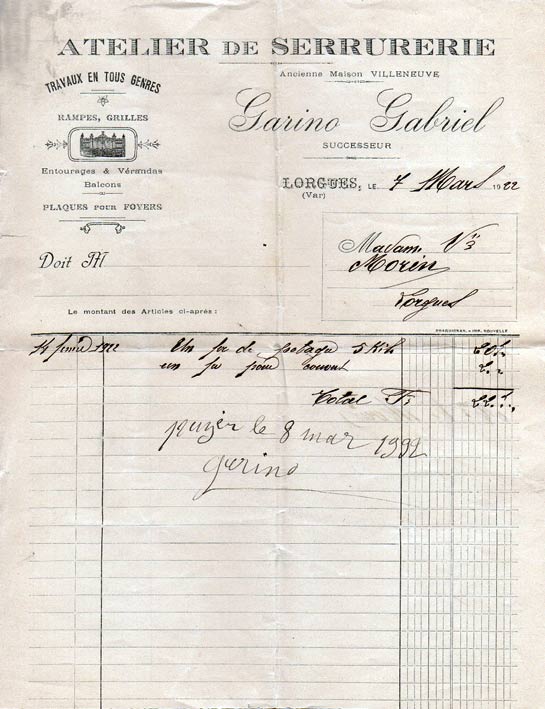 ATELIER DE SERRURERIE
TRAVAUX EN TOUS GENRES
RAMPES, GRILLES
Entourages & Vérandas
Balcons
PLAQUES POUR FOYERS
Ancienne Maison VILLENEUVE
Garino Gabriel
SUCCESSEUR
LORGUES, LE 7 Mars 1922
(Var)
Doit M
Madame Vve
Morin
Lorgues
Le montant des Articles ci-après :
DRAGUIGNAN. - IMP. NOUVELLE
14 1922 Un fer de 5 Kil
un fer pour
Total F
payer le 8 mar 1922
garino